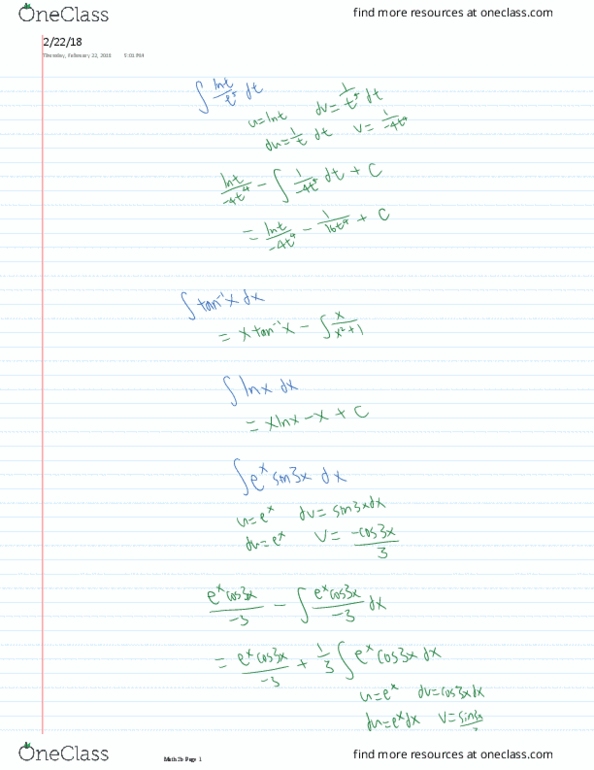 OneClass
find more resources at oneclass.com
2/22/18
Thursday, February 22, 2018 5:01 PM
∫ lnt/t⁵ dt
u=lnt dv= 1/t⁵ dt
du= 1/t dt v= 1/-4t⁴
lnt/-4t⁴ - ∫ 1/-4t⁵ dt + C
= lnt/-4t⁴ - 1/16t⁴ + C
∫ tan⁻¹x dx
= x tan⁻¹x - ∫ x/x²+1
∫ lnx dx
= xlnx - x + C
∫ eˣ sin3x dx
u=eˣ dv= sin3xdx
du=eˣ v= -cos3x/3
eˣcos3x/-3 - ∫ eˣcos3x/-3 dx
= eˣcos3x/-3 + 1/3 ∫ eˣ cos3x dx
u=eˣ dv=cos3xdx
du=eˣdx
OneClass
Page 1
find more resources at oneclass.com